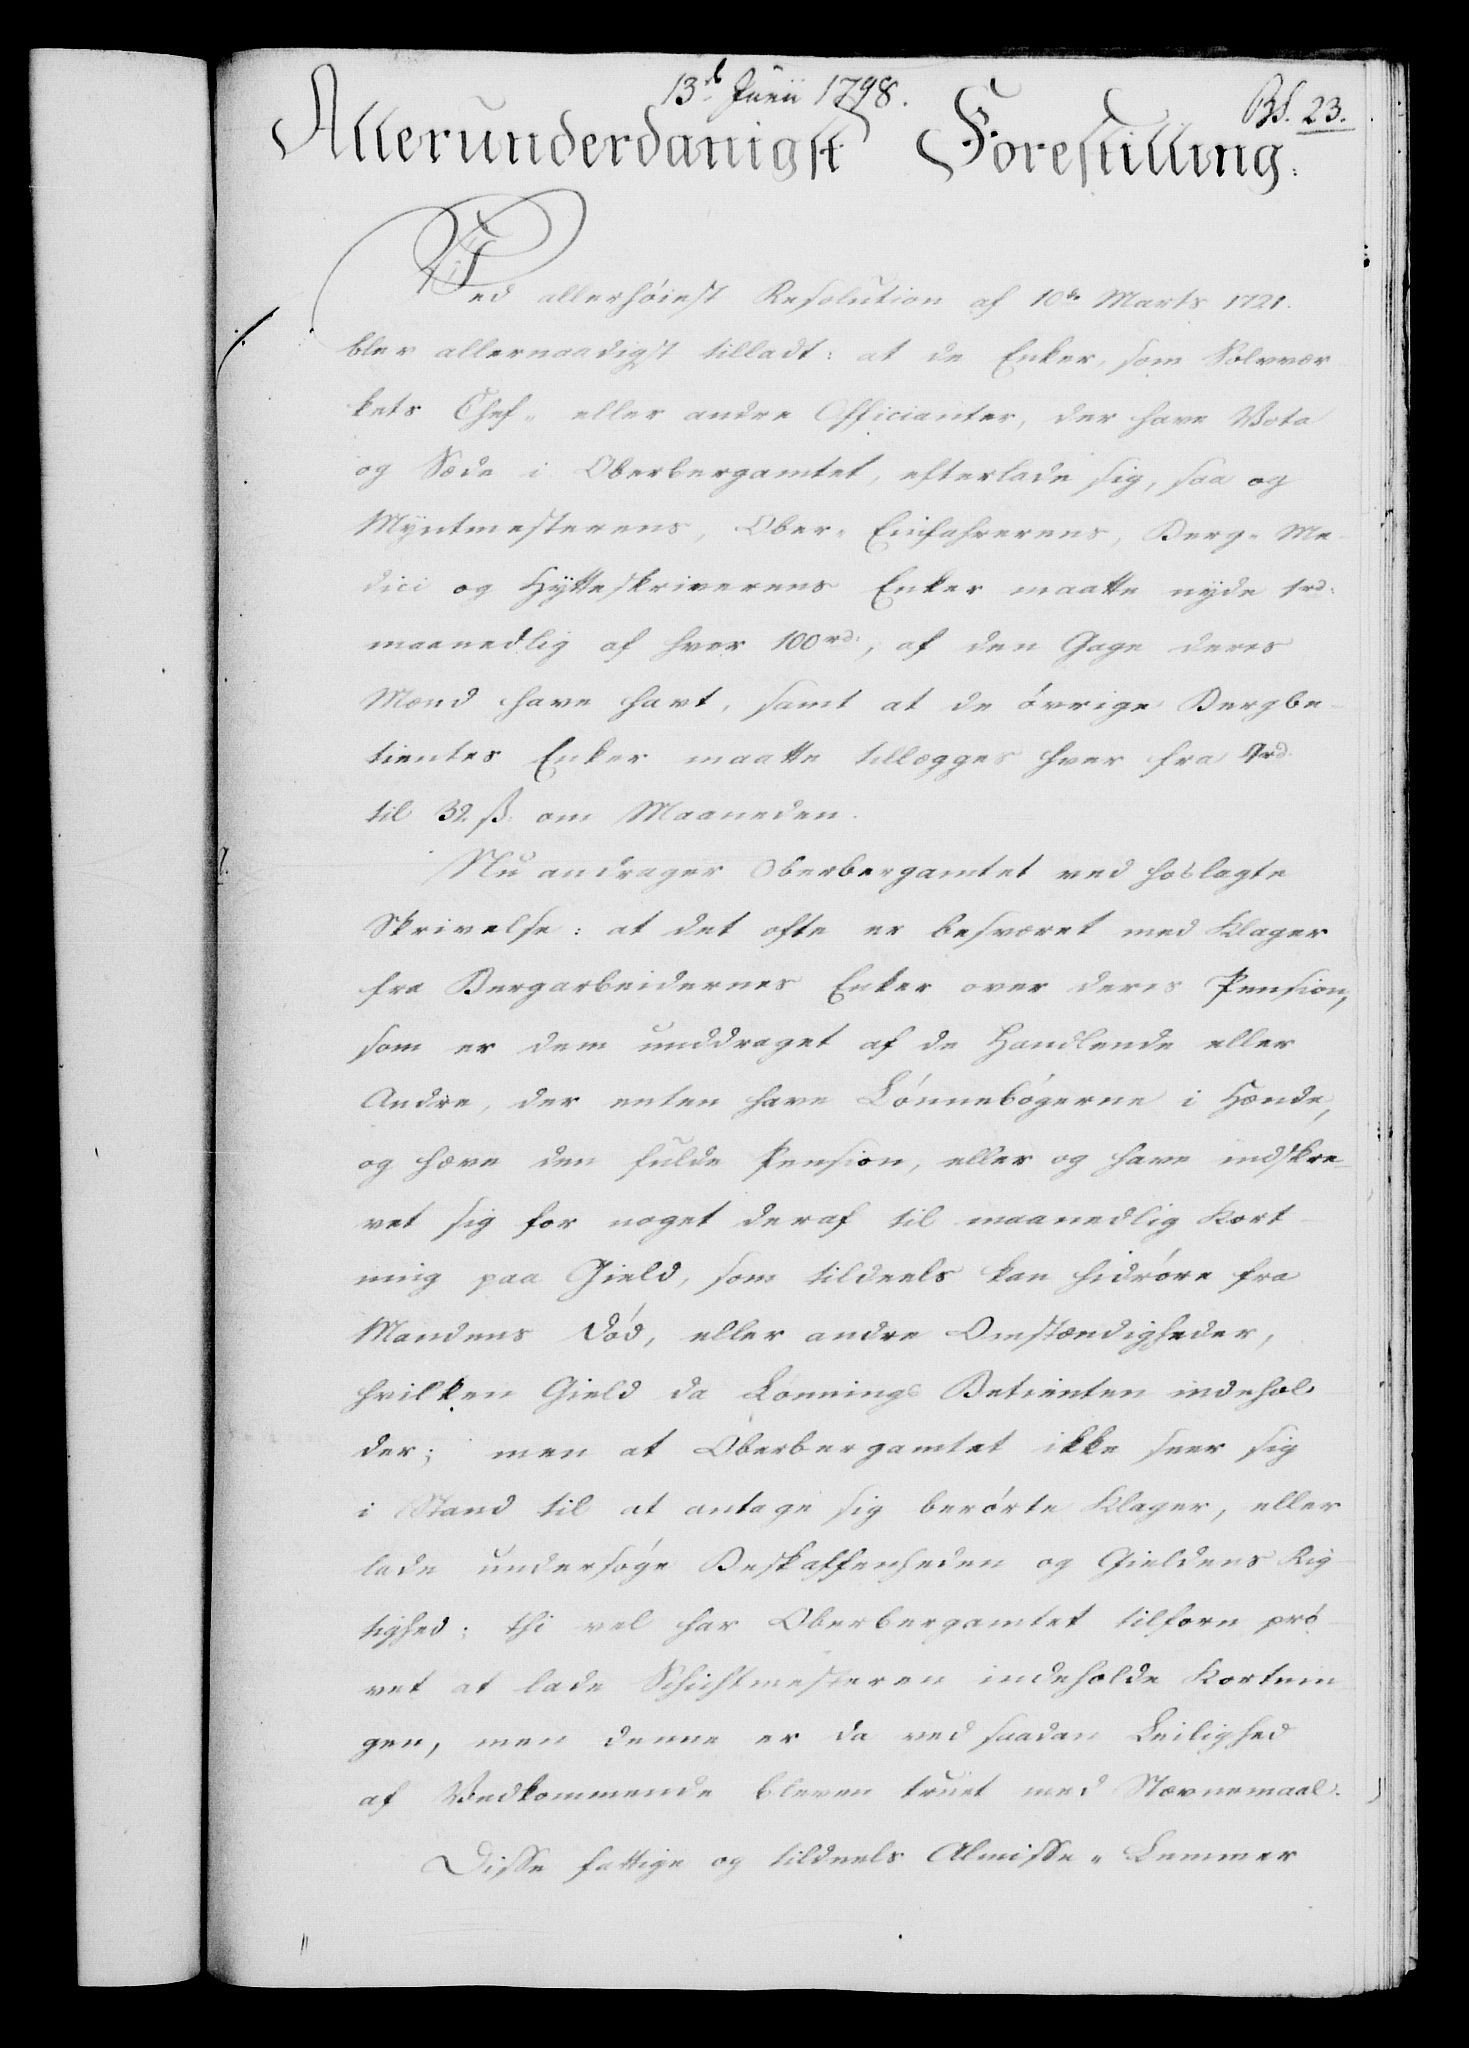 13d Junii 1798.
Bf. 23.
Allerunderdanigst Forestilling.
Ved allerhöiest Resolution af 10de Marts 1721.
blev allernaadigst tilladt: at de Enker, som Sölvvær
kets Chef- eller andre Officianter, der have Vota
og Sæde i Oberbergamtet, efterlade sig, saa og
Myntmesterens, Ober- Einfahrerens, Berg- Me-
dici og Hytteskriverens Enker maatte nyde 1rd:
maanedlig af hver 100rd:, af den Gage deres
Mænd have havt, samt at de övrige Bergbe-
tientes Enker maatte tillægges hver fra 4rd
til 32 ß. om Maaneden.
Nu andrager Oberbergamtet ved hoslagte
Skrivelse: at det ofte er besværet med Klager
fra Bergarbeidernes Enker over deres Pension,
som er dem unddraget af de Handlende eller
Andre, der enten have Lönnebögerne i Hænde,
og hæve den fulde Pension, eller og have indskre-
vet sig for noget deraf til maanedlig Kort-
ning paa Gield, som tildeels kan hidröre fra
Mandens Död, eller andre Omstændigheder,
hvilken Gield da Lönnings Betienten indehol-
der; men at Oberbergamtet ikke seer sig
i Stand til at antage sig berörte Klager, eller
lade undersöge Beskaffenheden og Gieldens Rig-
tighed; thi vel har Oberbergamtet tilforn prö-
vet at lade Schichtmesteren indeholde Kortnin
gen, men denne er da ved saadan Leilighed
af Vedkommende bleven truet med Stævnemaal.
Disse fattige og tildeels Almisse- Lemmer